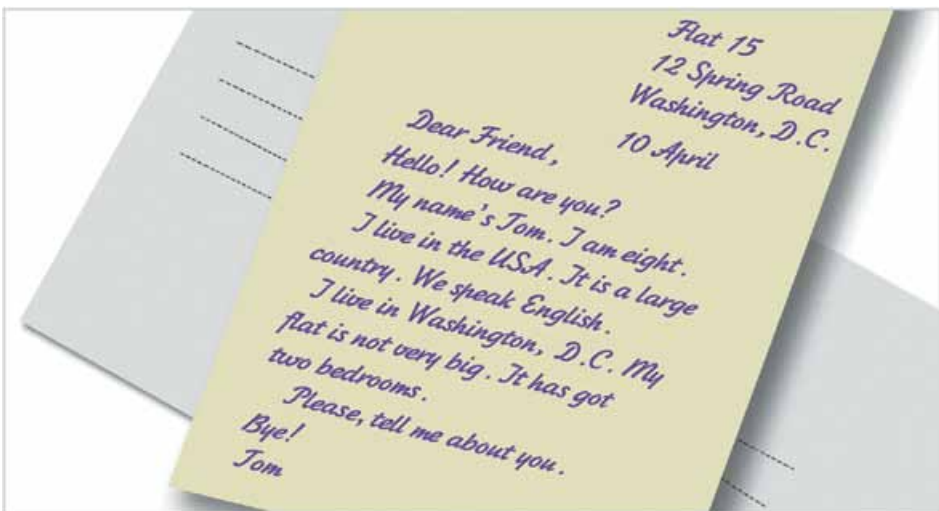 Flat 15
12 Spring Road
Washington, D.C.
10 April
Dear Friend,
Hello! How are you?
My name's Tom. I am eight.
I live in the USA. It is a large
country. We speak English.
I live in Washington, D.C. My
flat is not very big. It has got
two bedrooms.
Please, tell me about you.
Bye!
Tom